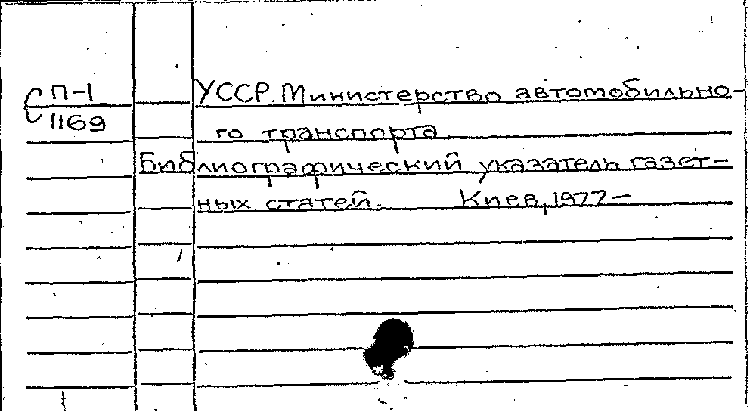 П-1
1169
УССР. Министерство автомобильно-
го транспорта.
Библиографический указатель газет-
ных статей. Киев, 1977-